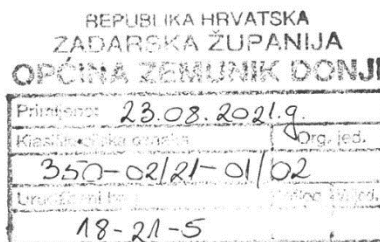 REPUBLIKA HRVATSKA
ZADARSKA ŽUPANIJA
OPĆINA ZEMUNIK DONJI
Primljeno: 23.08.2021.g
Klasifikacijska oznaka Org. jed.
350-02/21-01/02
18-21-5